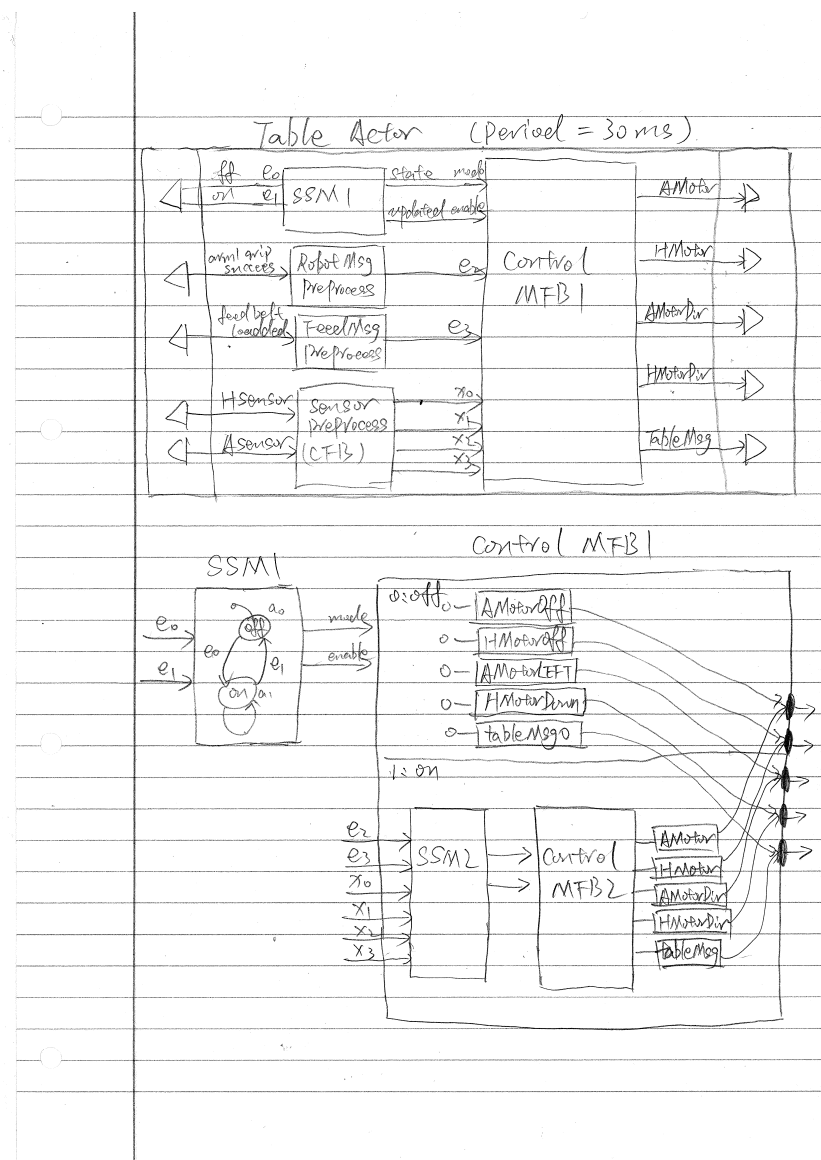 Table Actor (Period = 30ms)
off e0
on e1
SSM1
state mode
updated enable
arm1 grip
success
RobotMsg
preprocess
e2
feedbelt
loadded
FeedMsg
preprocess
e3
HSensor
Asensor
Sensor
preprocess
(CFB)
x0
x1
x2
x3
Control
MFB1
AMotor
HMotor
AMotorDir
HMotorDir
TableMsg
SSM1
e0
e1
off
a0
e0
e1
on
a1
mode
enable
Control MFB1
0:off
0 AMotorOff
0 HMotorOff
0 AMotorLEFT
0 HMotorDown
0 tableMsg0
1:on
e2
e3
x0
x1
x2
x3
SSM2
Control
MFB2
AMotor
HMotor
AMotorDir
HMotorDir
tableMsg